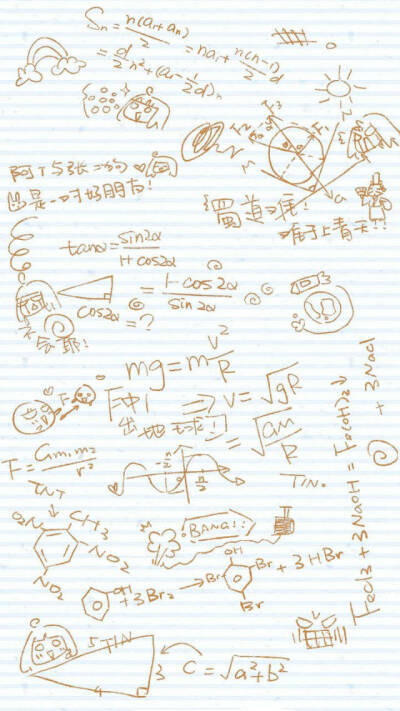 Sn = n(a₁+an)/2 = na₁ + n(n-1)/2 d
= d/2 n² + (a₁ - 1/2 d)n
阿T与张二狗
是一对好朋友!
蜀道难
难于上青天!!
tanα = sin2α/1+cos2α
= 1-cos2α/sin2α
cos2α = ?
不会耶!
mg = m v²/R
F冲!
出地球!!
⇒ V = √gR
= √GM/R
F = Gm₁m₂/r²
TIN.
TNT
O₂N
CH₃
NO₂
NO₂
BANG!!
OH
+ 3Br₂ →
OH
Br
Br
Br
+ 3HBr
FeCl₃ + 3NaOH = Fe(OH)₃↓ + 3NaCl
5 TIN
3
4
C = √a²+b²